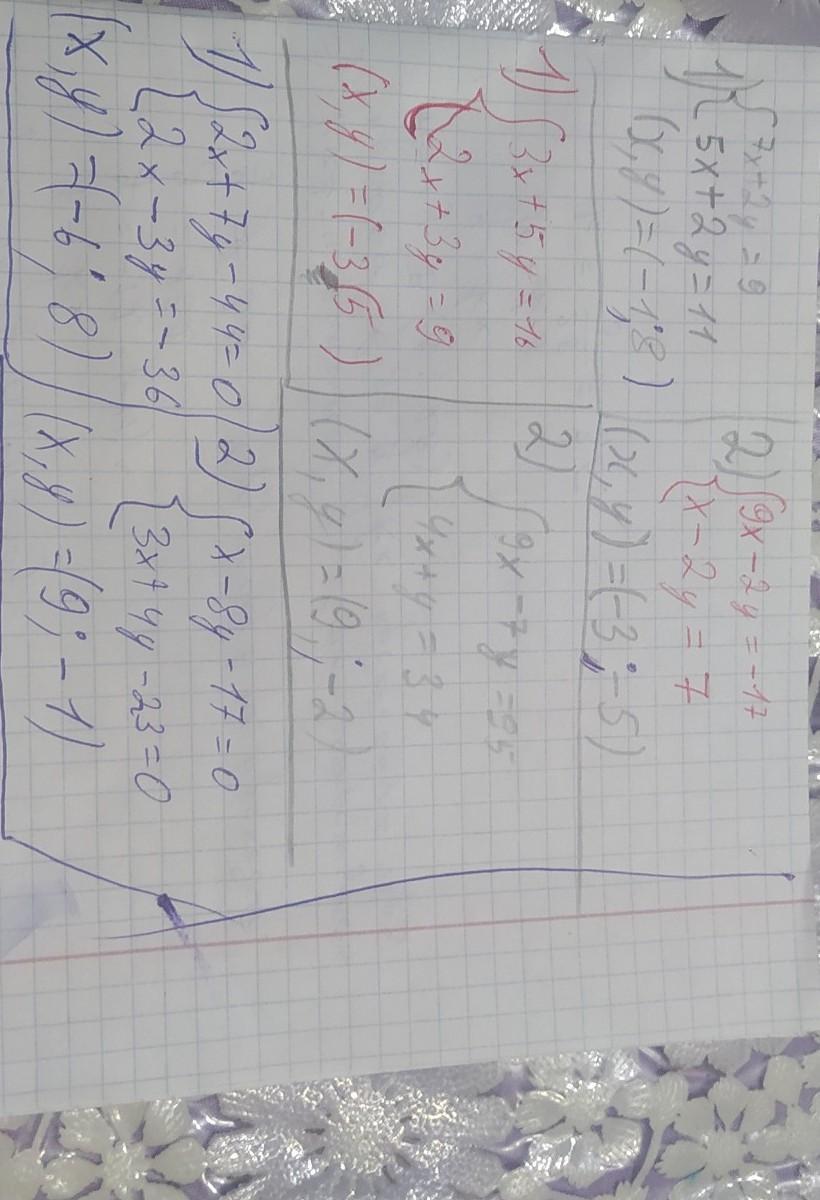 1) { 7x+2y=9
5x+2y=11
(x,y)=(-1;8)
2) { 9x-2y=-17
x-2y=7
(x,y)=(-3;-5)
1) { 3x+5y=16
2x+3y=9
(x,y)=(-3;5)
2) { 9x-7y=95
4x+y=34
(x,y)=(9;-2)
1) { 2x+7y-44=0
2x-3y=-36
(x,y)=(-6;8)
2) { x-8y-17=0
3x+4y-23=0
(x,y)=(9;-1)